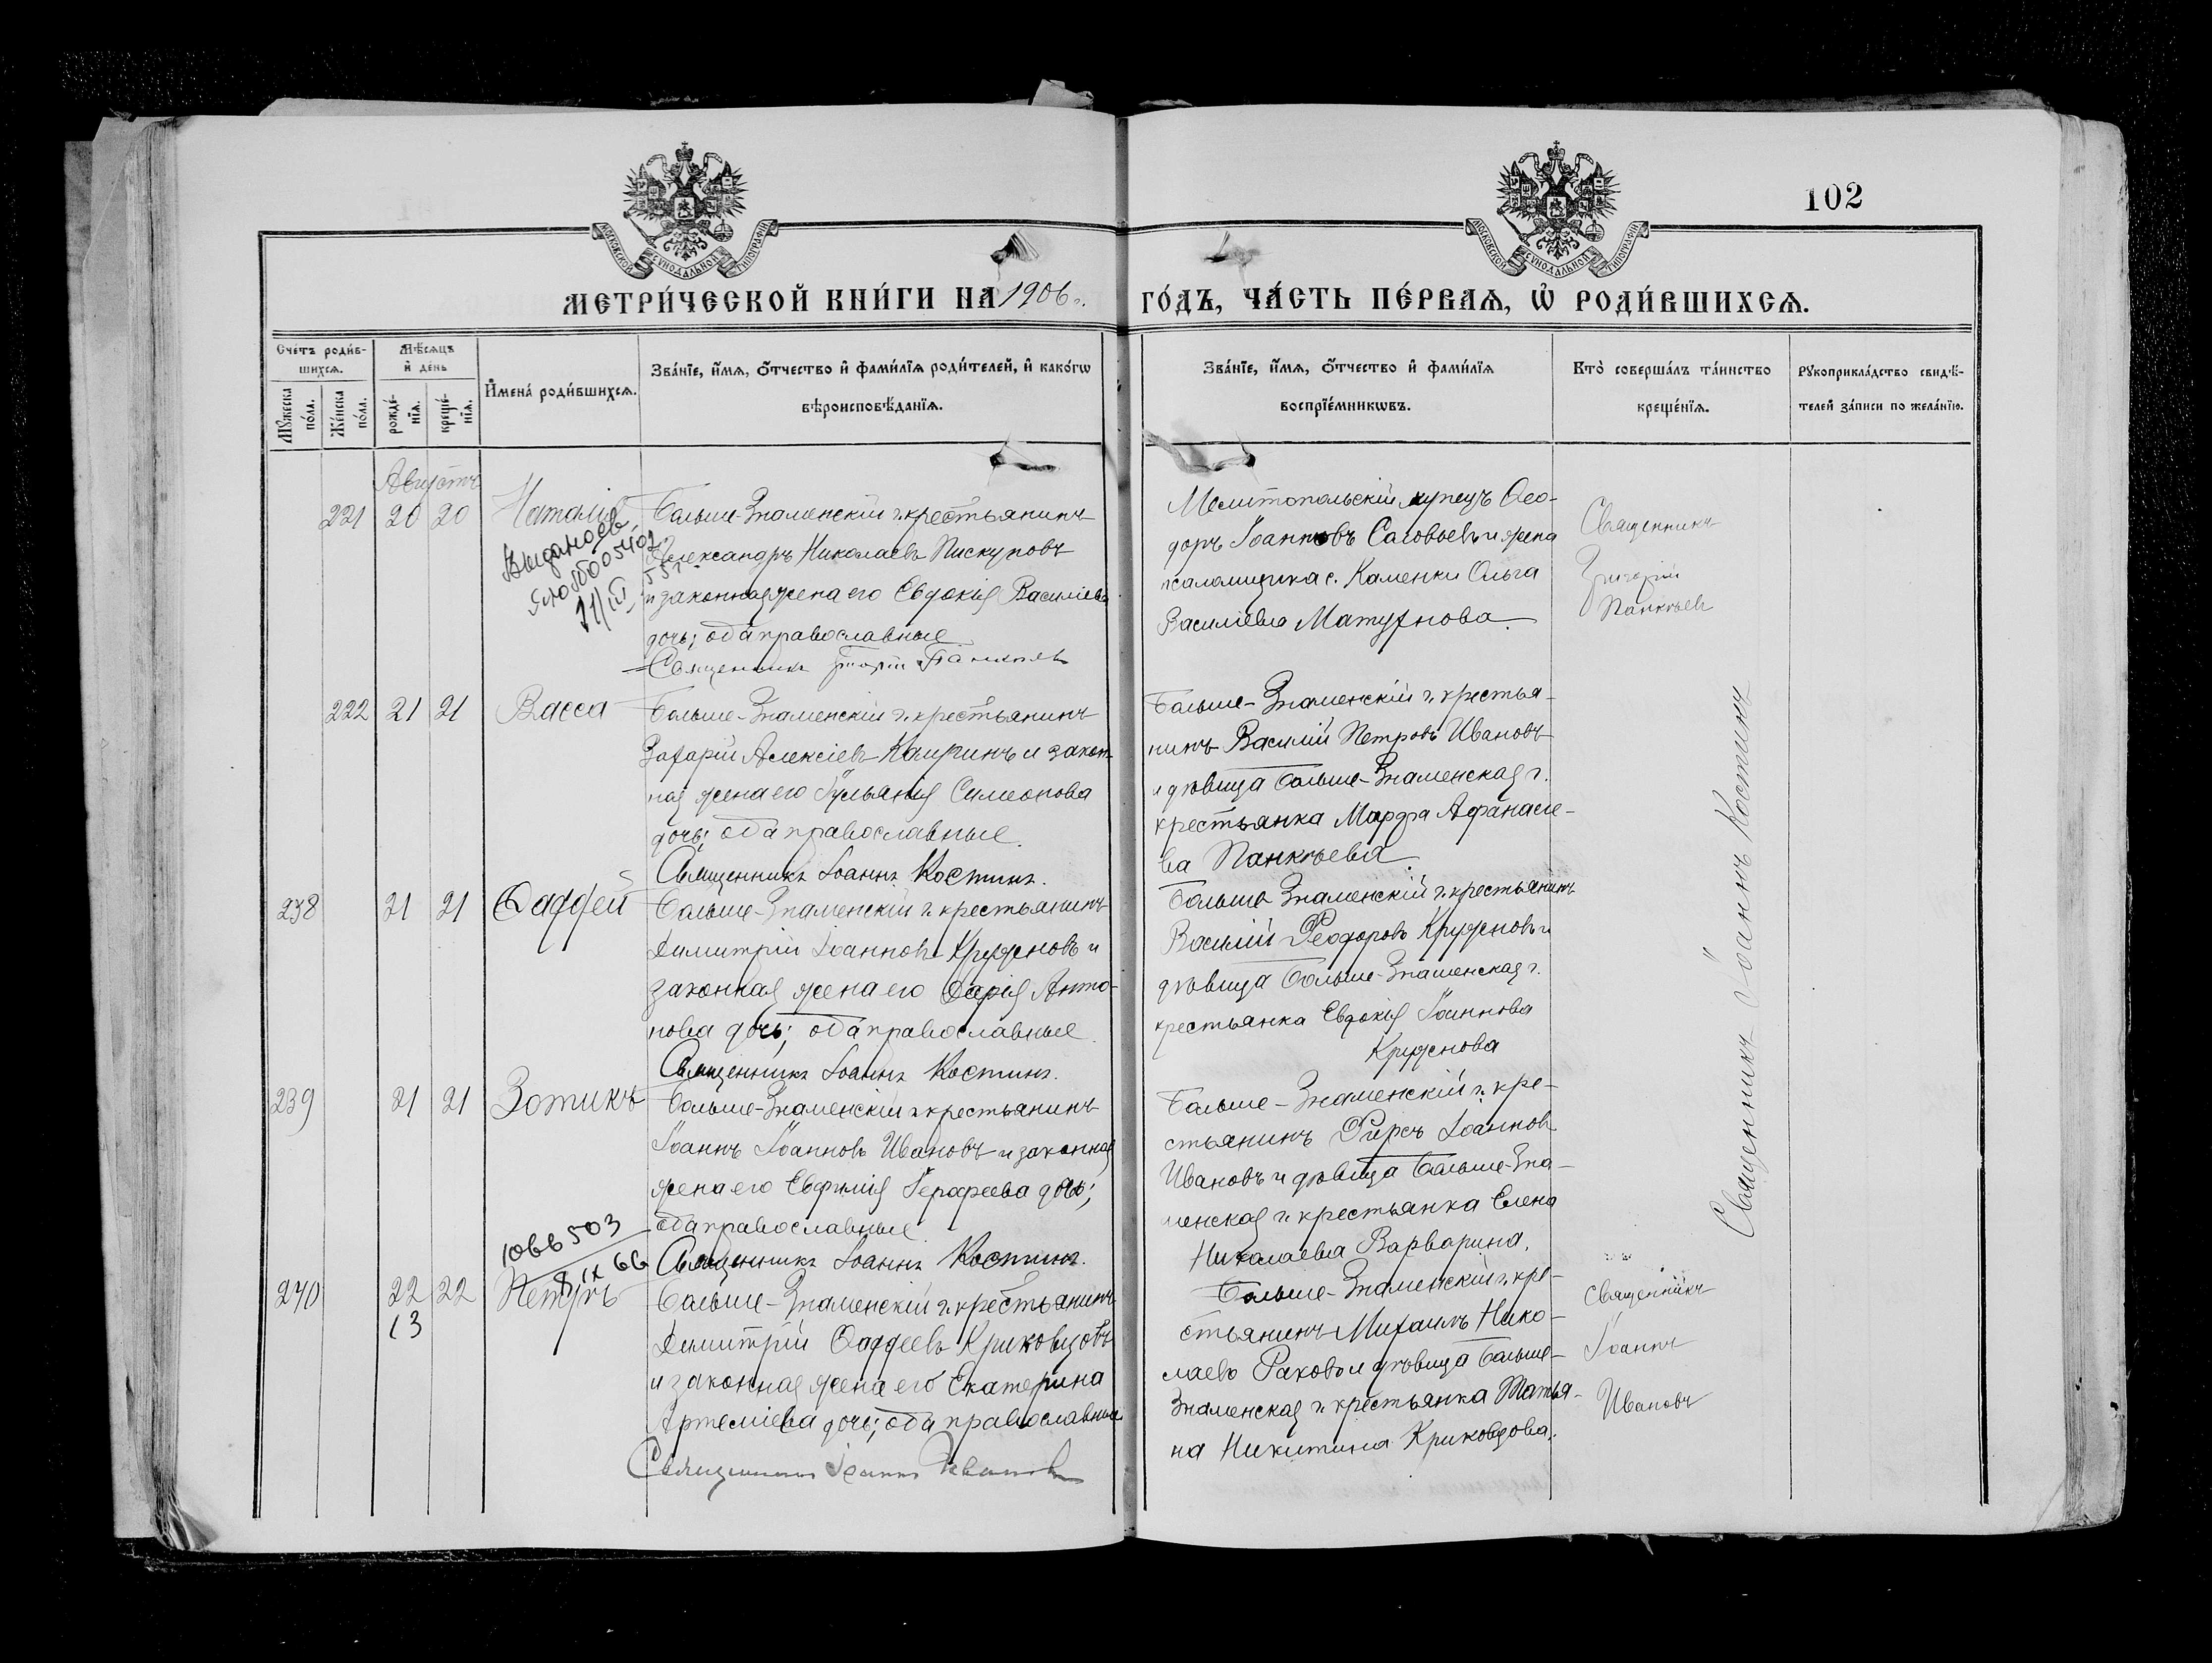 102
МОСКОВСКОЙ СѴНОДАЛЬНОЙ ТИПОГРАФІИ
МОСКОВСКОЙ СѴНОДАЛЬНОЙ ТИПОГРАФІИ
МЕТРИ́ЧЕСКОЙ КНИ́ГИ НА 1906 г.
ГО́ДЪ, ЧА́СТЬ ПЕ́РВАѦ, Ѡ҆ РОДИ́ВШИХСѦ.
Сче́тъ роди́в-
шихсѧ.
Мꙋжеска по́ла.
Же́нска по́ла.
Мѣ́сѧцъ
и҆ де́нь
рожде́-
нїѧ.
креще́-
нїѧ.
И҆мена̀ роди́вшихсѧ.
Зва́нїе, и҆́мѧ, ѻ҆́тчество и҆ фами́лїѧ роди́телей, и҆ како́гѡ
вѣроисповѣ́данїѧ.
Зва́нїе, и҆́мѧ, ѻ҆́тчество и҆ фами́лїѧ
воспрїе́мникѡвъ.
Кто̀ соверша́лъ та́инство
креще́нїѧ.
Рꙋкоприкла́дство свидѣ́-
телей за́писи по жела́нїю.
Августъ
221 20 20 Наталія
Больше-Знаменскій г. крестьянинъ
Александръ Николаевъ Пискуновъ
и законная жена его Евдокія Василіева
дочь; оба православные
Священникъ Панкѣев
Мелитопольскій купецъ Ѳео-
доръ Іоанновъ Соловьевъ и жена
псаломщика с. Каменки Ольга
Василіева
Священникъ
Григорій
Панкѣевъ
222 21 21 Васса
Больше-Знаменскій г. крестьянинъ
Захарій Алексіевъ Каиринъ и закон-
ная жена его Іуліанія Симеонова
дочь; оба православные.
Священникъ Іоаннъ Костинъ.
Больше-Знаменскій г. крестья-
нинъ Василій Петровъ Ивановъ
и дѣвица Больше-Знаменская г.
крестьянка Марфа Афанасіе-
ва Панкѣева.
238 21 21 Ѳаддей
Больше-Знаменскій г. крестьянинъ
Димитрій Іоанновъ Круженовъ и
законная жена его Дарія Анто-
нова дочь; оба православные.
Священникъ Іоаннъ Костинъ.
Больше Знаменскій г. крестьянинъ
Василій Ѳеодоровъ Круженовъ и
дѣвица Больше-Знаменская г.
крестьянка Евдокія Іоаннова
Круженова
Священникъ Іоаннъ Костинъ
239 21 21 Зотикъ
Больше-Знаменскій г. крестьянинъ
Іоаннъ Іоанновъ Ивановъ и законная
жена его Евфимія Іерофеева дочь;
оба православные.
Священникъ Іоаннъ Костинъ.
Больше-Знаменскій г. кре-
стьянинъ Ѳирсъ Іоанновъ
Ивановъ и дѣвица Больше-Зна-
менская г. крестьянка Елена
Николаева Варварина.
1066503
8 IX 66
240 22 22 Петръ
13
Больше-Знаменскій г. крестьянинъ
Димитрій Ѳаддеевъ Криковцовъ
и законная жена его Екатерина
Артеміева дочь; оба православные
Священникъ Іоаннъ Ивановъ
Больше-Знаменскій г. кре-
стьянинъ Михаилъ Нико-
лаевъ Раковъ и дѣвица Больше-
Знаменская г. крестьянка Татья-
на Никитина Криковцова.
Священникъ
Іоаннъ
Ивановъ